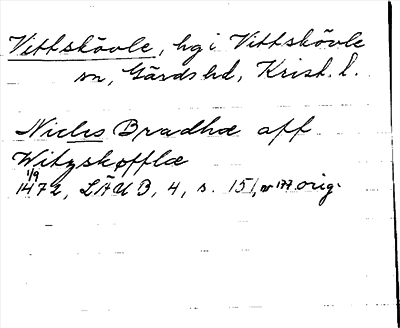 Vittskövle, hg i Vittskövle
sn, Gärds hd, Krist. l.
Niclis Bradhæ aff
Witzskøfflæ
1/9
1472, LÄUB, 4, s. 151, nr 177 orig.